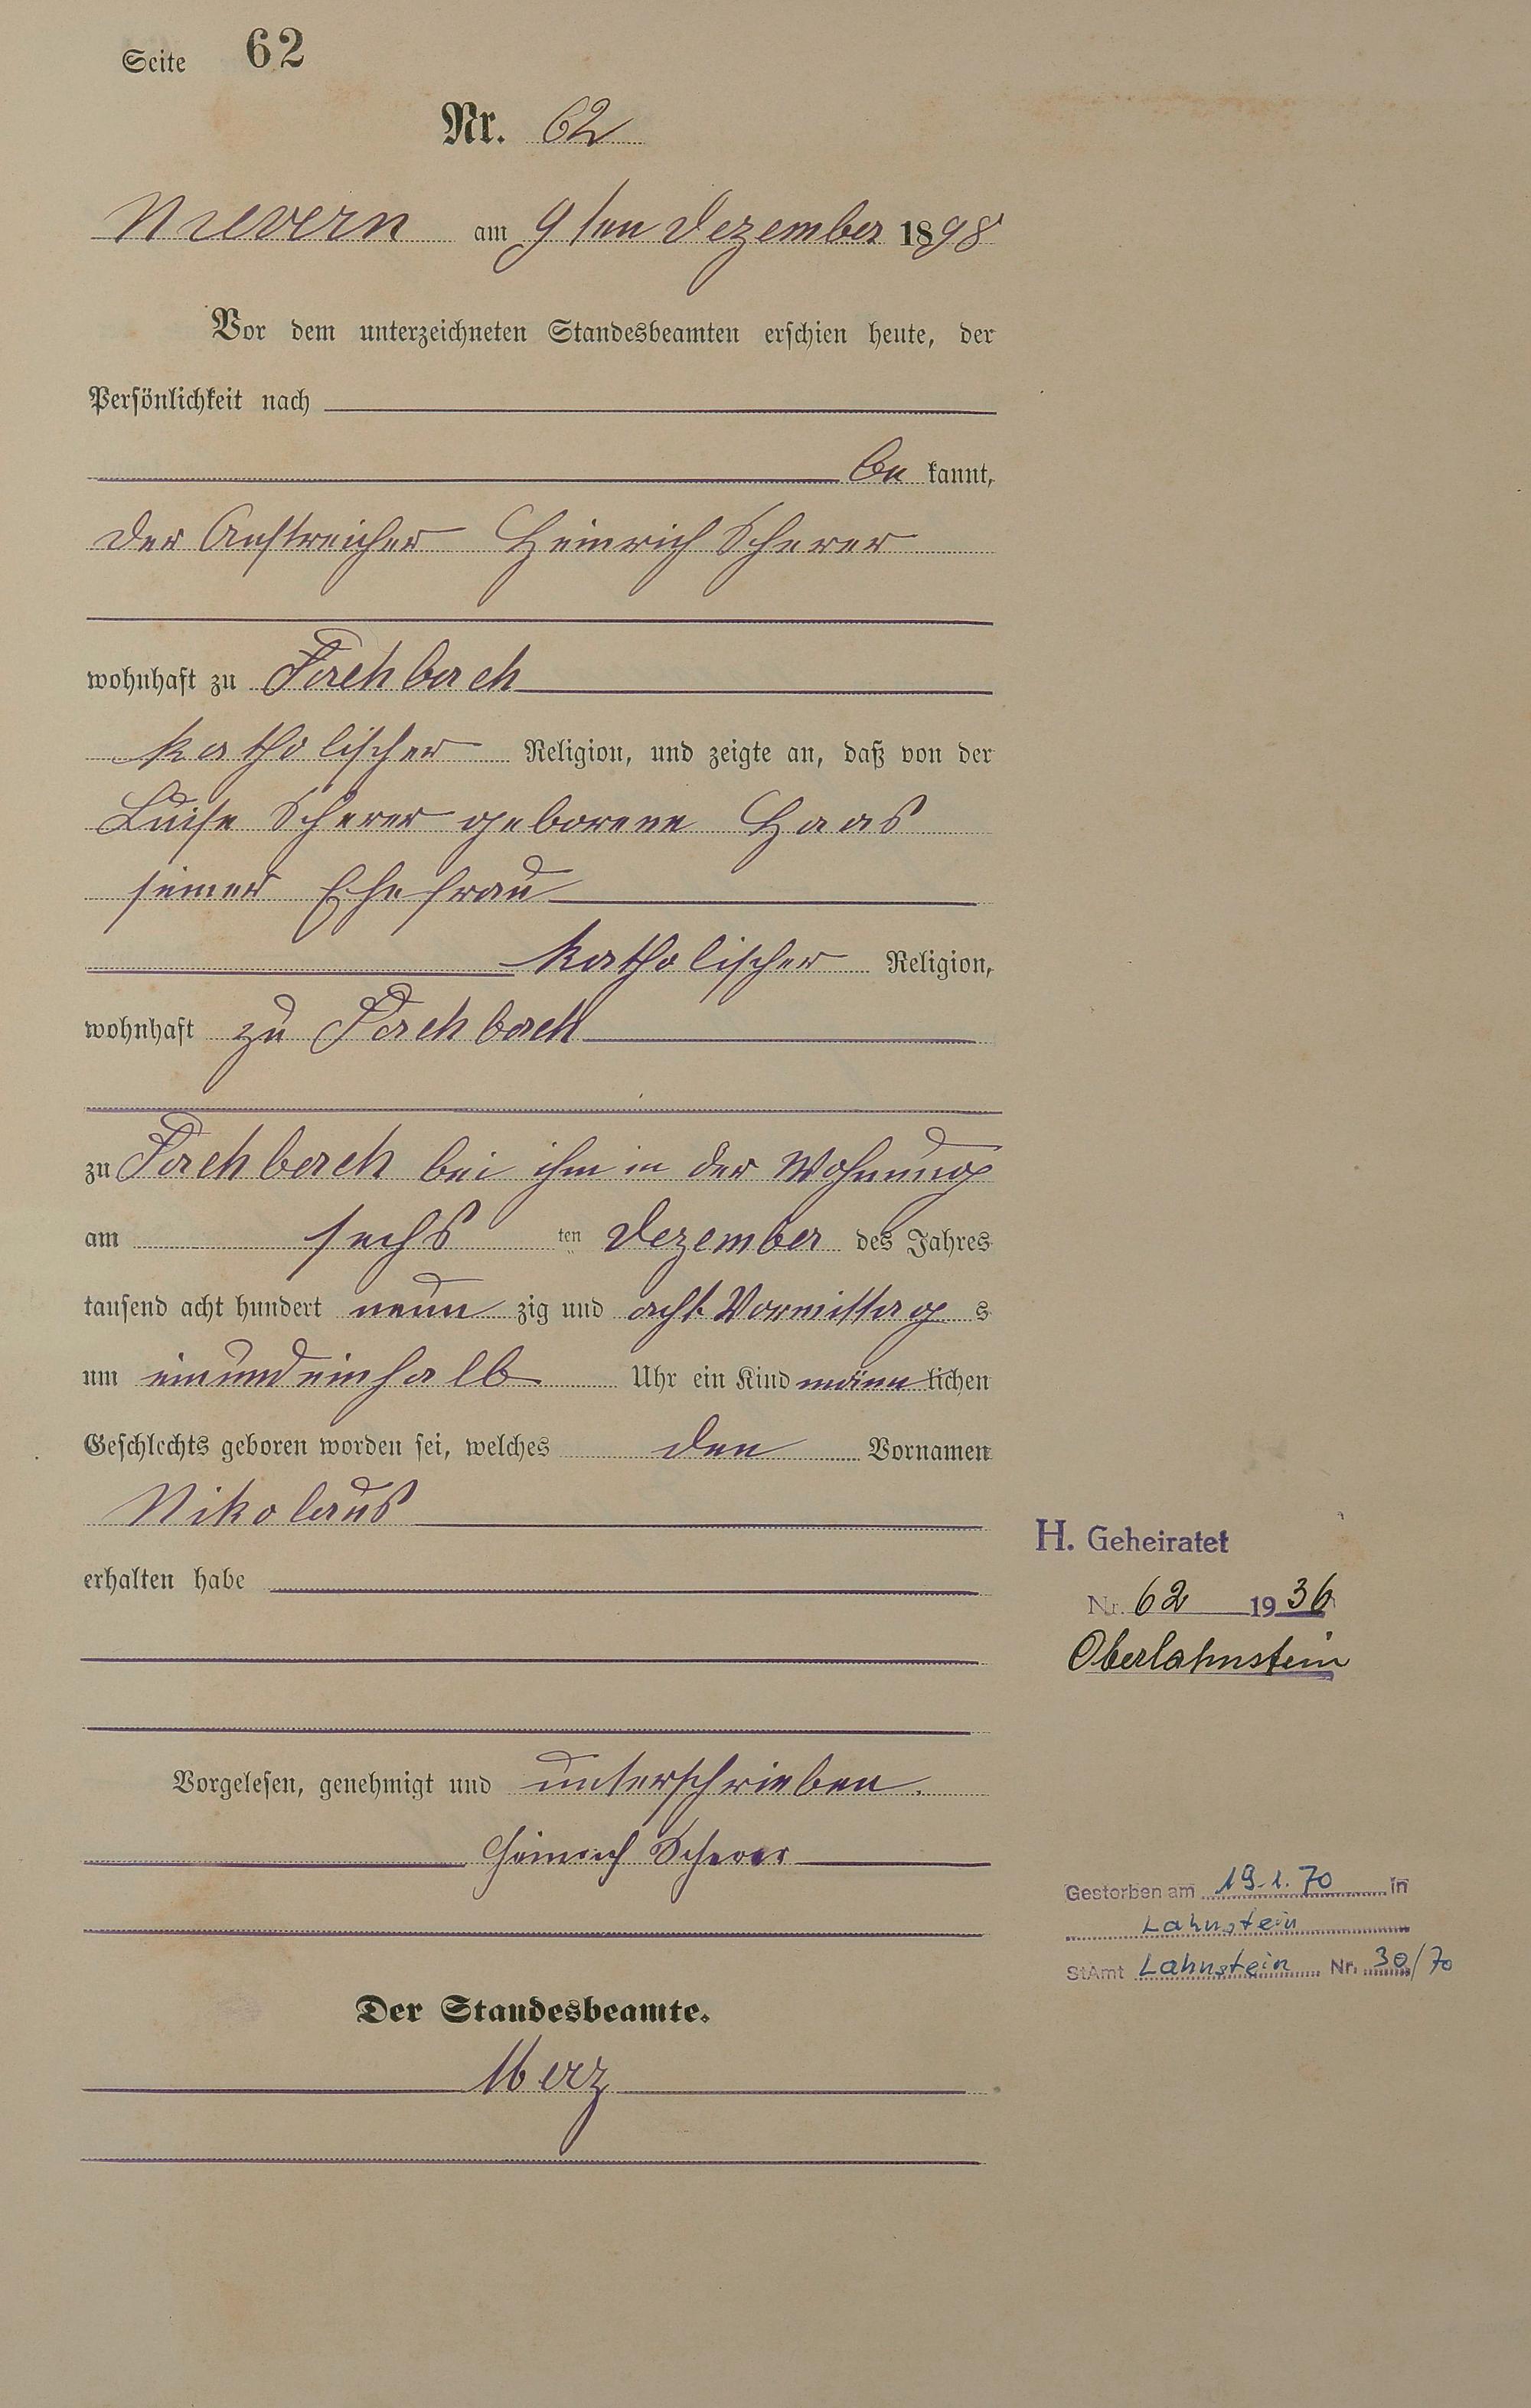 Seite 62
Nr. 62
Nievern am 9ten Dezember 1898
Vor dem unterzeichneten Standesbeamten erschien heute, der
Persönlichkeit nach
be kannt,
der Anstreicher Heinrich Scherer
wohnhaft zu Fachbach
katholischer Religion, und zeigte an, daß von der
Luise Scherer geborene Haas
seiner Ehefrau
katholischer Religion,
wohnhaft zu Fachbach
zu Fachbach bei ihm in der Wohnung
am sechs ten Dezember des Jahres
tausend acht hundert neun zig und acht Vormittag s
um einundeinhalb Uhr ein Kind männ lichen
Geschlechts geboren worden sei, welches den Vornamen
Nikolaus
erhalten habe
Vorgelesen, genehmigt und unterschrieben.
Heinrich Scherer
Der Standesbeamte.
Merz
H. Geheiratet
Nr. 62 1936
Oberlahnstein
Gestorben am 19.1.70 in
Lahnstein
StAmt Lahnstein Nr. 30/70